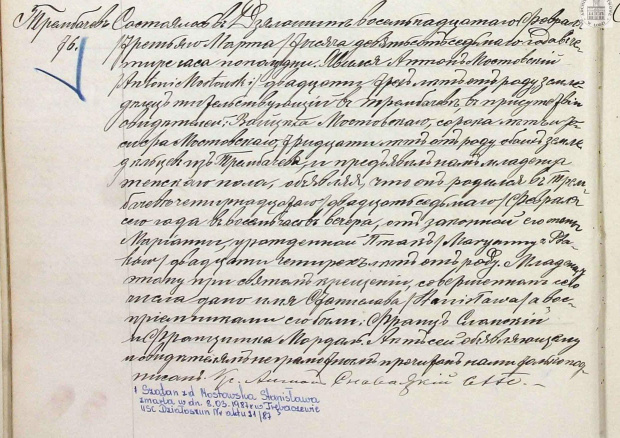 Трембачевъ Состоялось въ Дзялошинѣ восемнадцатаго Февраля
96. /третьяго Марта/ тысяча девятьсотъ седьмаго года въ че-
тыре часа пополудни. Явился Антонъ Мостовскій
/Antoni Mostowski/ двадцати трехъ лѣтъ отъ роду земле-
дѣлецъ жительствующій въ Трембачевѣ, въ присутствіи
свидѣтелей: Войцеха Мостовскаго, сорока лѣтъ и
Мостовскаго, тридцати лѣтъ отъ роду обоихъ земле-
дѣльцевъ изъ Трембачева, и предъявилъ намъ младенца
женскаго пола, объявляя, что онъ родился въ Трем-
бачевѣ четырнадцатаго /двадцать седьмаго/ Февраля
сего года въ восемь часовъ вечера, отъ законной его жены
Маріанны, урожденной Птакъ /Maryanny z Pta-
ków/ двадцати четырехъ лѣтъ отъ роду. Младенцу
этому при святомъ крещеніи, совершенномъ сего
числа дано имя Станислава /Stanisława/ а вос-
пріемниками его были: Францъ
и Францишка Мордаль. Актъ сей объявляющему
и свидѣтелямъ неграмотнымъ прочитанъ нами только под-
писанъ. Кс. Антоній
Szatan z d Mostowska Stanisława
zmarła w dn. 8.03.1987r w Trębaczewie
USC Działoszyn Nr aktu 21/87